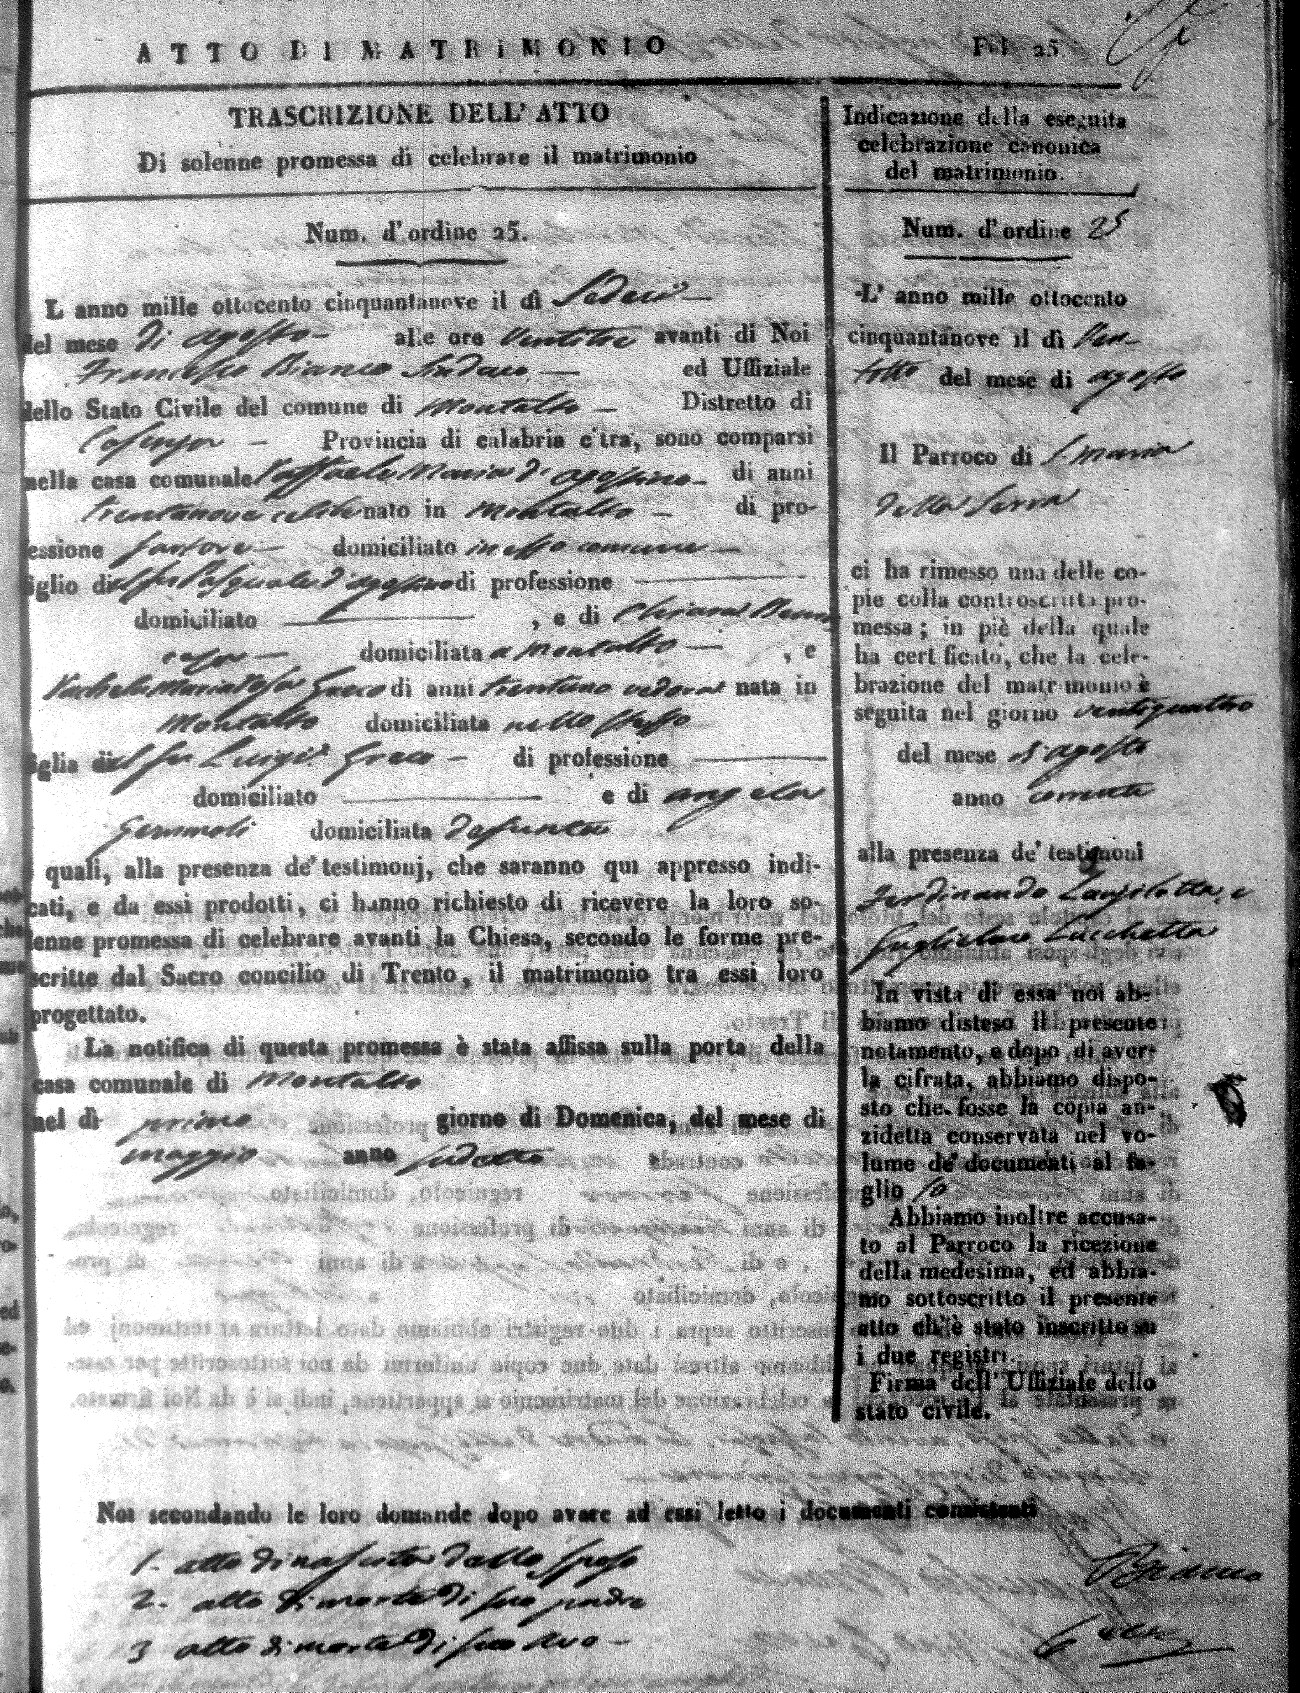 ATTO DI MATRIMONIO Fol 25
TRASCRIZIONE DELL' ATTO
Di solenne promessa di celebrare il matrimonio
Num. d' ordine 25.
L anno mille ottocento cinquantanove il dì Sedeci
del mese di agosto alle ore ventitre avanti di Noi
Francesco Bianco Sindaco ed Uffiziale
dello Stato Civile del comune di Montalto Distretto di
Cosenza Provincia di calabria citra, sono comparsi
nella casa comunale Raffaele Maria d'agostino di anni
trentanove celibe nato in Montalto di pro-
essione domiciliato in esso comune
iglio del fu Pasquale d'agostino di professione
domiciliato , e di Chiara
domiciliata a Montalto , e
Rachele Maria Rosa Greco di anni trentuno vedova nata in
Montalto domiciliata nello stesso
iglia di del fu Luigi Greco di professione
domiciliato e di angela
domiciliata defunta
quali, alla presenza de' testimonj, che saranno qui appresso indi-
cati, e da essi prodotti, ci hanno richiesto di ricevere la loro so-
lenne promessa di celebrare avanti la Chiesa, secondo le forme pre-
scritte dal Sacro concilio di Trento, il matrimonio tra essi loro
progettato.
La notifica di questa promessa è stata affissa sulla porta della
casa comunale di Montalto
nel dì primo giorno di Domenica, del mese di
maggio anno sudetto
Indicazione della eseguita
celebrazione canonica
del matrimonio.
Num. d' ordine 25
L' anno mille ottocento
cinquantanove il dì Ven-
totto del mese di agosto
Il Parroco di S. Maria
della Serra
ci ha rimesso una delle co-
pie colla controscritta pro-
messa; in piè della quale
ha certificato, che la cele-
brazione del matrimonio è
seguita nel giorno ventiquattro
del mese d'agosto
anno corrente
alla presenza de' testimoni
Ferdinando e
Guglielmo Lucchetta
In vista di essa noi ab-
biamo disteso il presente
notamento, e dopo di aver-
la cifrata, abbiamo dispo-
sto che fosse la copia an-
zidetta conservata nel vo-
lume de' documenti al fo-
glio 10
Abbiamo inoltre accusa-
to al Parroco la ricezione
della medesima, ed abbia-
mo sottoscritto il presente
atto ch'è stato inscritto su
i due registri.
Firma dell' Uffiziale dello
stato civile.
Noi secondando le loro domande dopo avere ad essi letto i documenti consistenti
1. atto di nascita dello sposo
2. atto di morte di suo padre
3 atto di morte di suo avo
Bianco